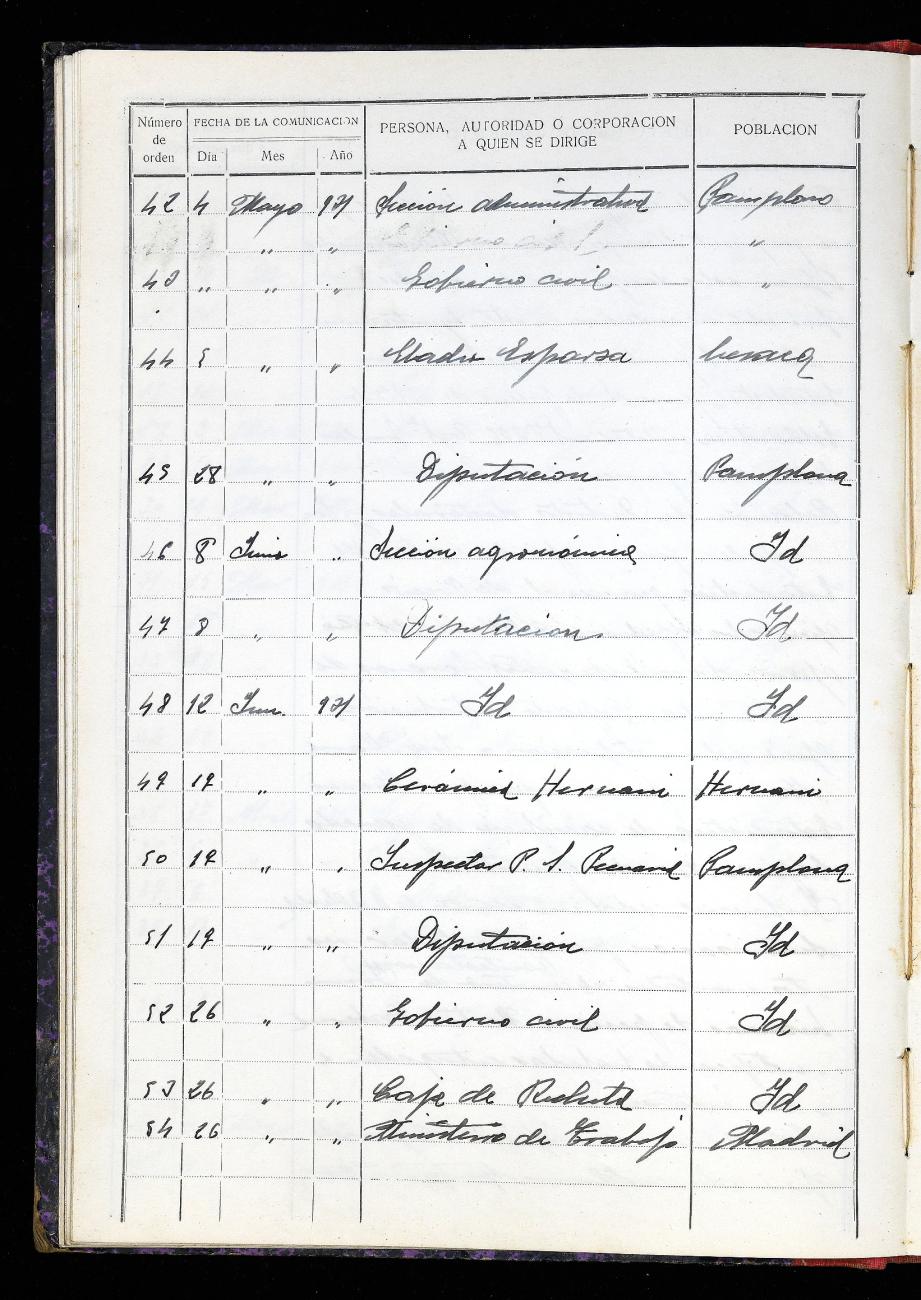 Número de orden FECHA DE LA COMUNICACION Día Mes Año PERSONA, AUTORIDAD O CORPORACION A QUIEN SE DIRIGE POBLACION
42 4 Mayo 931 Sección administrativa Pamplona
„ „ Gobierno civil. „
43 „ „ „ Gobierno civil „
44 5 „ „ Eladio Esparza
45 28 „ „ Diputación Pamplona
46 8 Junio „ Sección agronómica Id
47 8 „ „ Diputacion Id
48 12 Jun. 931 Id Id
49 17 „ „ Cerámica Hernani Hernani
50 17 „ „ Inspector P. S. Pecuaria Pamplona
51 17 „ „ Diputación Id
52 26 „ „ Gobierno civil Id
53 26 „ „ Caja de Recluta Id
54 26 „ „ Ministerio de Trabajo Madrid